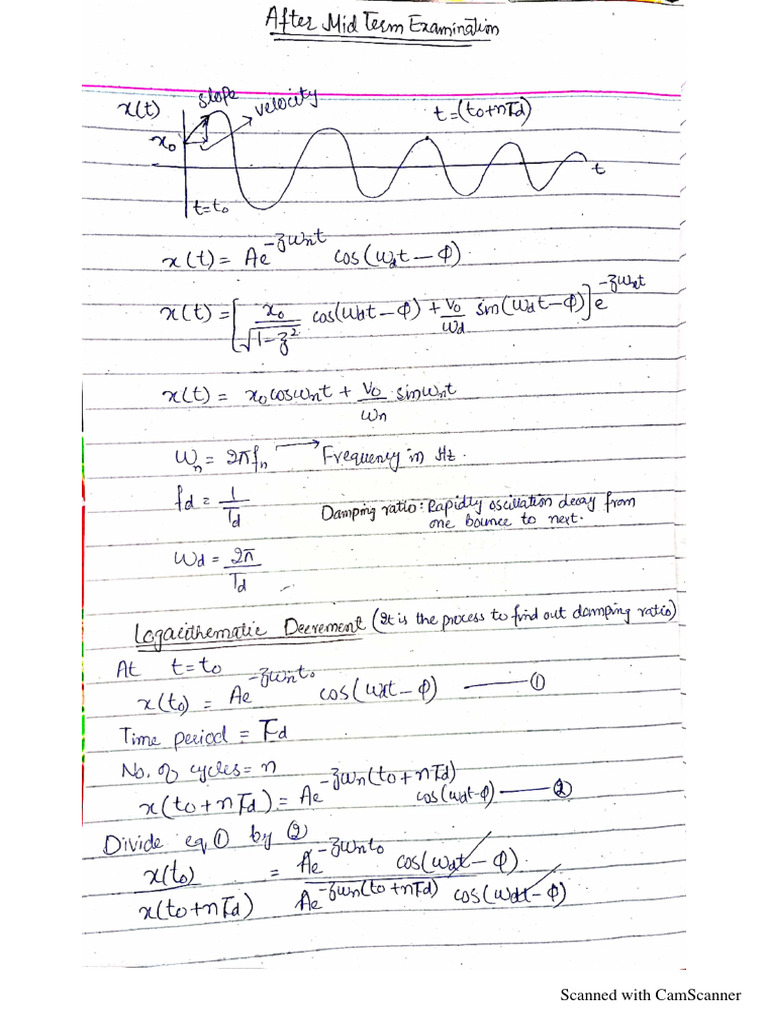 After Mid Term Examination
x(t) slope velocity t=(to+nTd)
xo
t
t=to
x(t) = Ae^-ζωnt cos(ωdt-φ)
x(t) = [xo/√1-ζ² cos(ωdt-φ) + vo/ωd sin(ωdt-φ)] e^-ζωnt
x(t) = xo cosωnt + vo/ωn sinωnt
ωn = 2πfn → Frequency in Hz.
fd = 1/Td Damping ratio: Rapidly oscillation decay from
one bounce to next.
ωd = 2π/Td
Logarithematic Decrement (It is the process to find out damping ratio)
At t=to
x(to) = Ae^-ζωnto cos(ωdt-φ) ——— ①
Time period = Td
No. of cycles = n
x(to+nTd) = Ae^-ζωn(to+nTd) cos(ωdt-φ) ——— ②
Divide eq ① by ②
x(to)/x(to+nTd) = Ae^-ζωnto cos(ωdt-φ)/Ae^-ζωn(to+nTd) cos(ωdt-φ)
Scanned with CamScanner